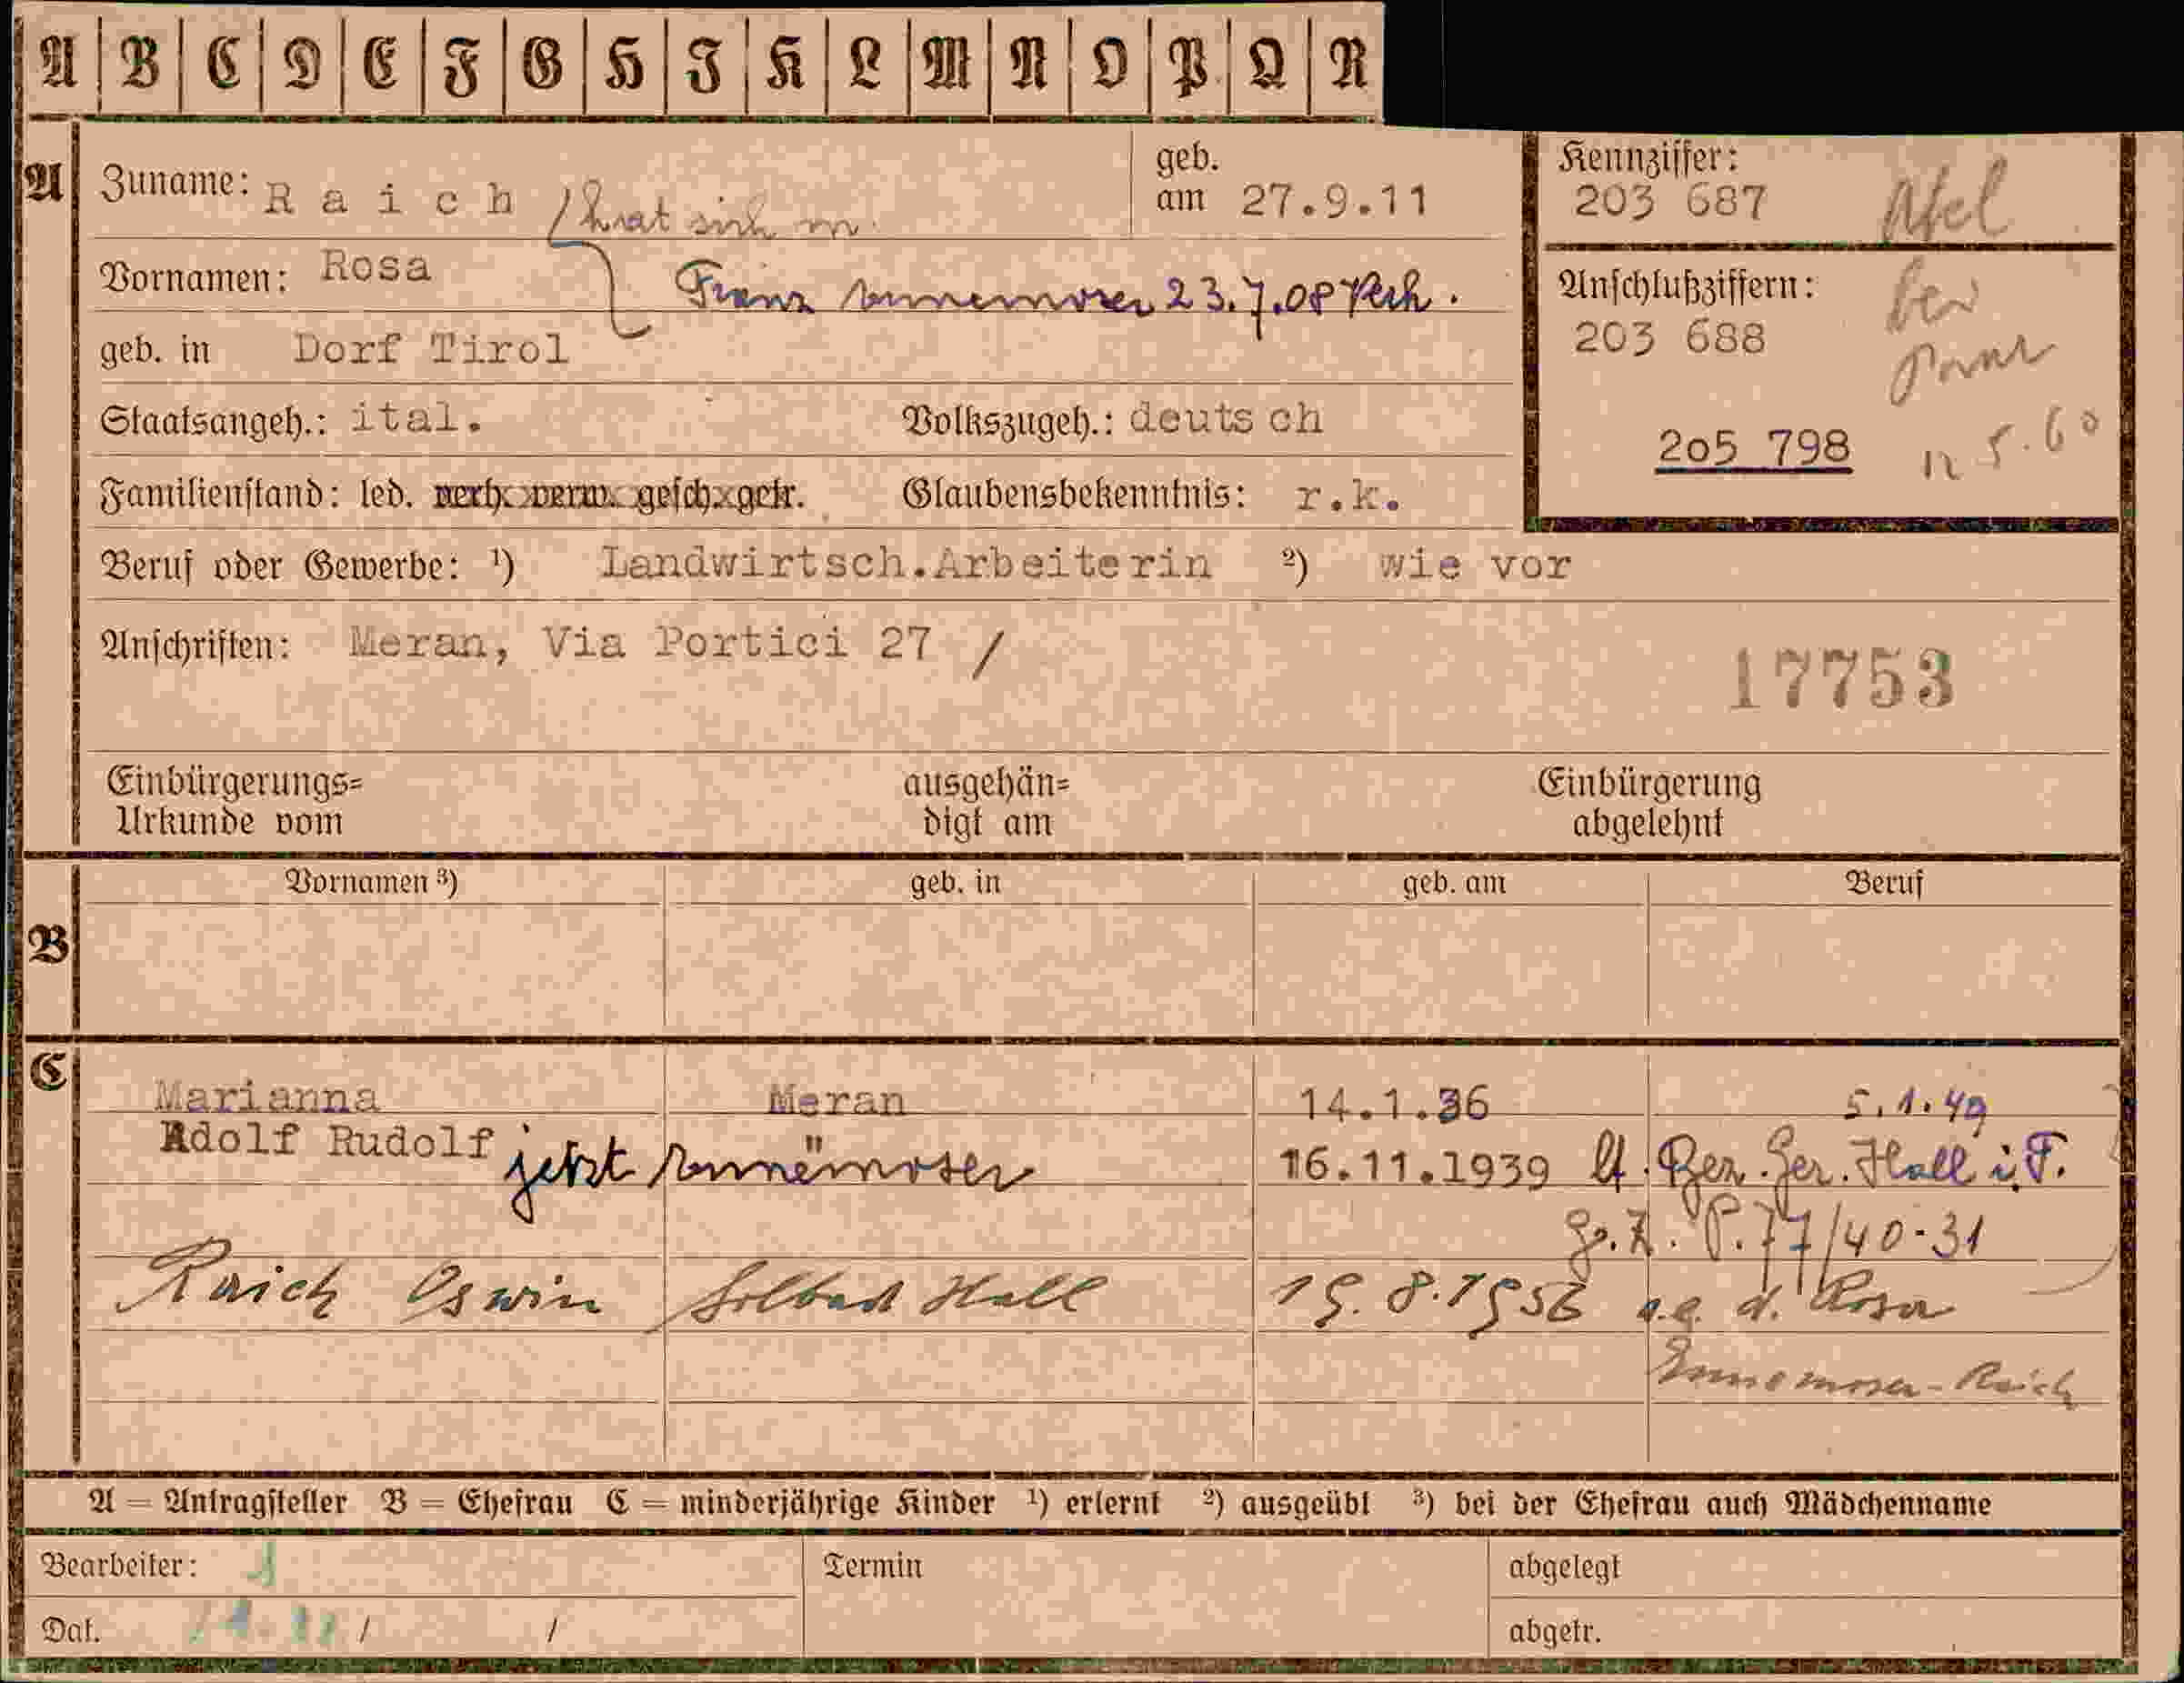 A B C D E F G H I K L M N O P Q R
A
Zuname: Raich / hat sich m.
geb. am 27.9.11
Kennziffer:
203 687
Vornamen: Rosa
Franz Ennemoser 23.7.08 Verh.
Anschlußziffern:
203 688
geb. in Dorf Tirol
Staatsangeh.: ital. Volkszugeh.: deutsch
205 798
5.60
Familienstand: led. verh. verw. gesch. getr. Glaubensbekenntnis: r.k.
Beruf oder Gewerbe: ¹) Landwirtsch.Arbeiterin ²) wie vor
Anschriften: Meran, Via Portici 27 /
17753
Einbürgerungs=
Urkunde vom
ausgehän=
digt am
Einbürgerung
abgelehnt
Vornamen ³) geb. in geb. am Beruf
B
C
Marianna Meran 14.1.36 5.1.49
Adolf Rudolf jetzt Ennemoser 16.11.1939 lt. Bez. Ger. Hall i. T.
P. 77/40-31
Raich Oswin Solbad Hall 19.8.1956 a.e. d. Rosa
Ennemoser-Raich
A = Antragsteller B = Ehefrau C = minderjährige Kinder ¹) erlernt ²) ausgeübt ³) bei der Ehefrau auch Mädchenname
Bearbeiter:
Termin
abgelegt
Dat. / /
abgetr.